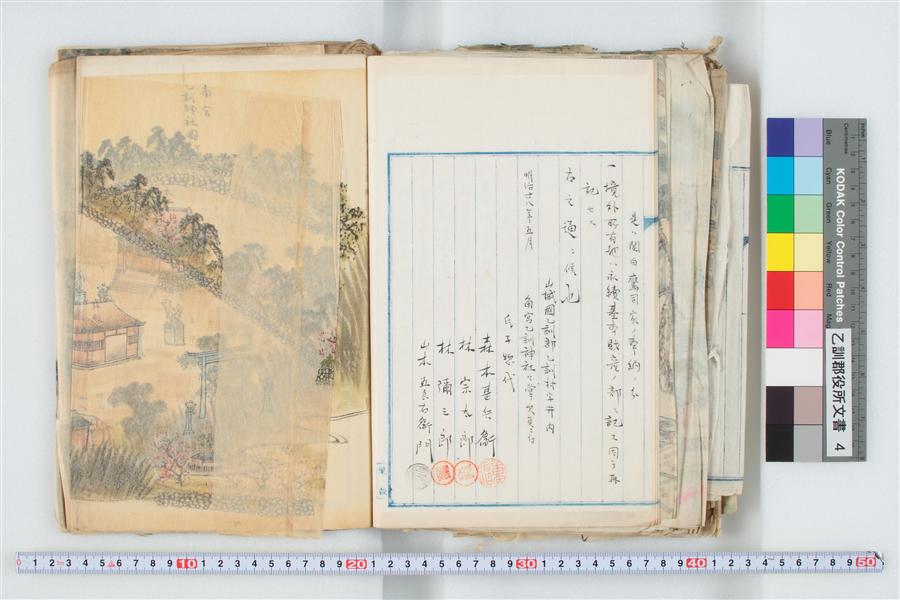 是ハ関白鷹司家ノ奉納ノ分
一境外所有地ハ永続基本財産ノ部ニ記ス因テ再
記セス
右之通ニ候也
明治廿八年五月
山城國乙訓郡乙訓村字井内
角宮乙訓神社
氏子惣代
森本甚兵衛
林宗太郎
林彌三郎
山本五良右衛門
角宮
乙訓神社図
KODAK Color Control Patches
Blue Cyan Green Yellow Red
Inches
Centimetres
乙訓郡役所文書 4
1 2 3 4 5 6 7 8 9 10 1 2 3 4 5 6 7 8 9 20 1 2 3 4 5 6 7 8 9 30 1 2 3 4 5 6 7 8 9 40 1 2 3 4 5 6 7 8 9 50